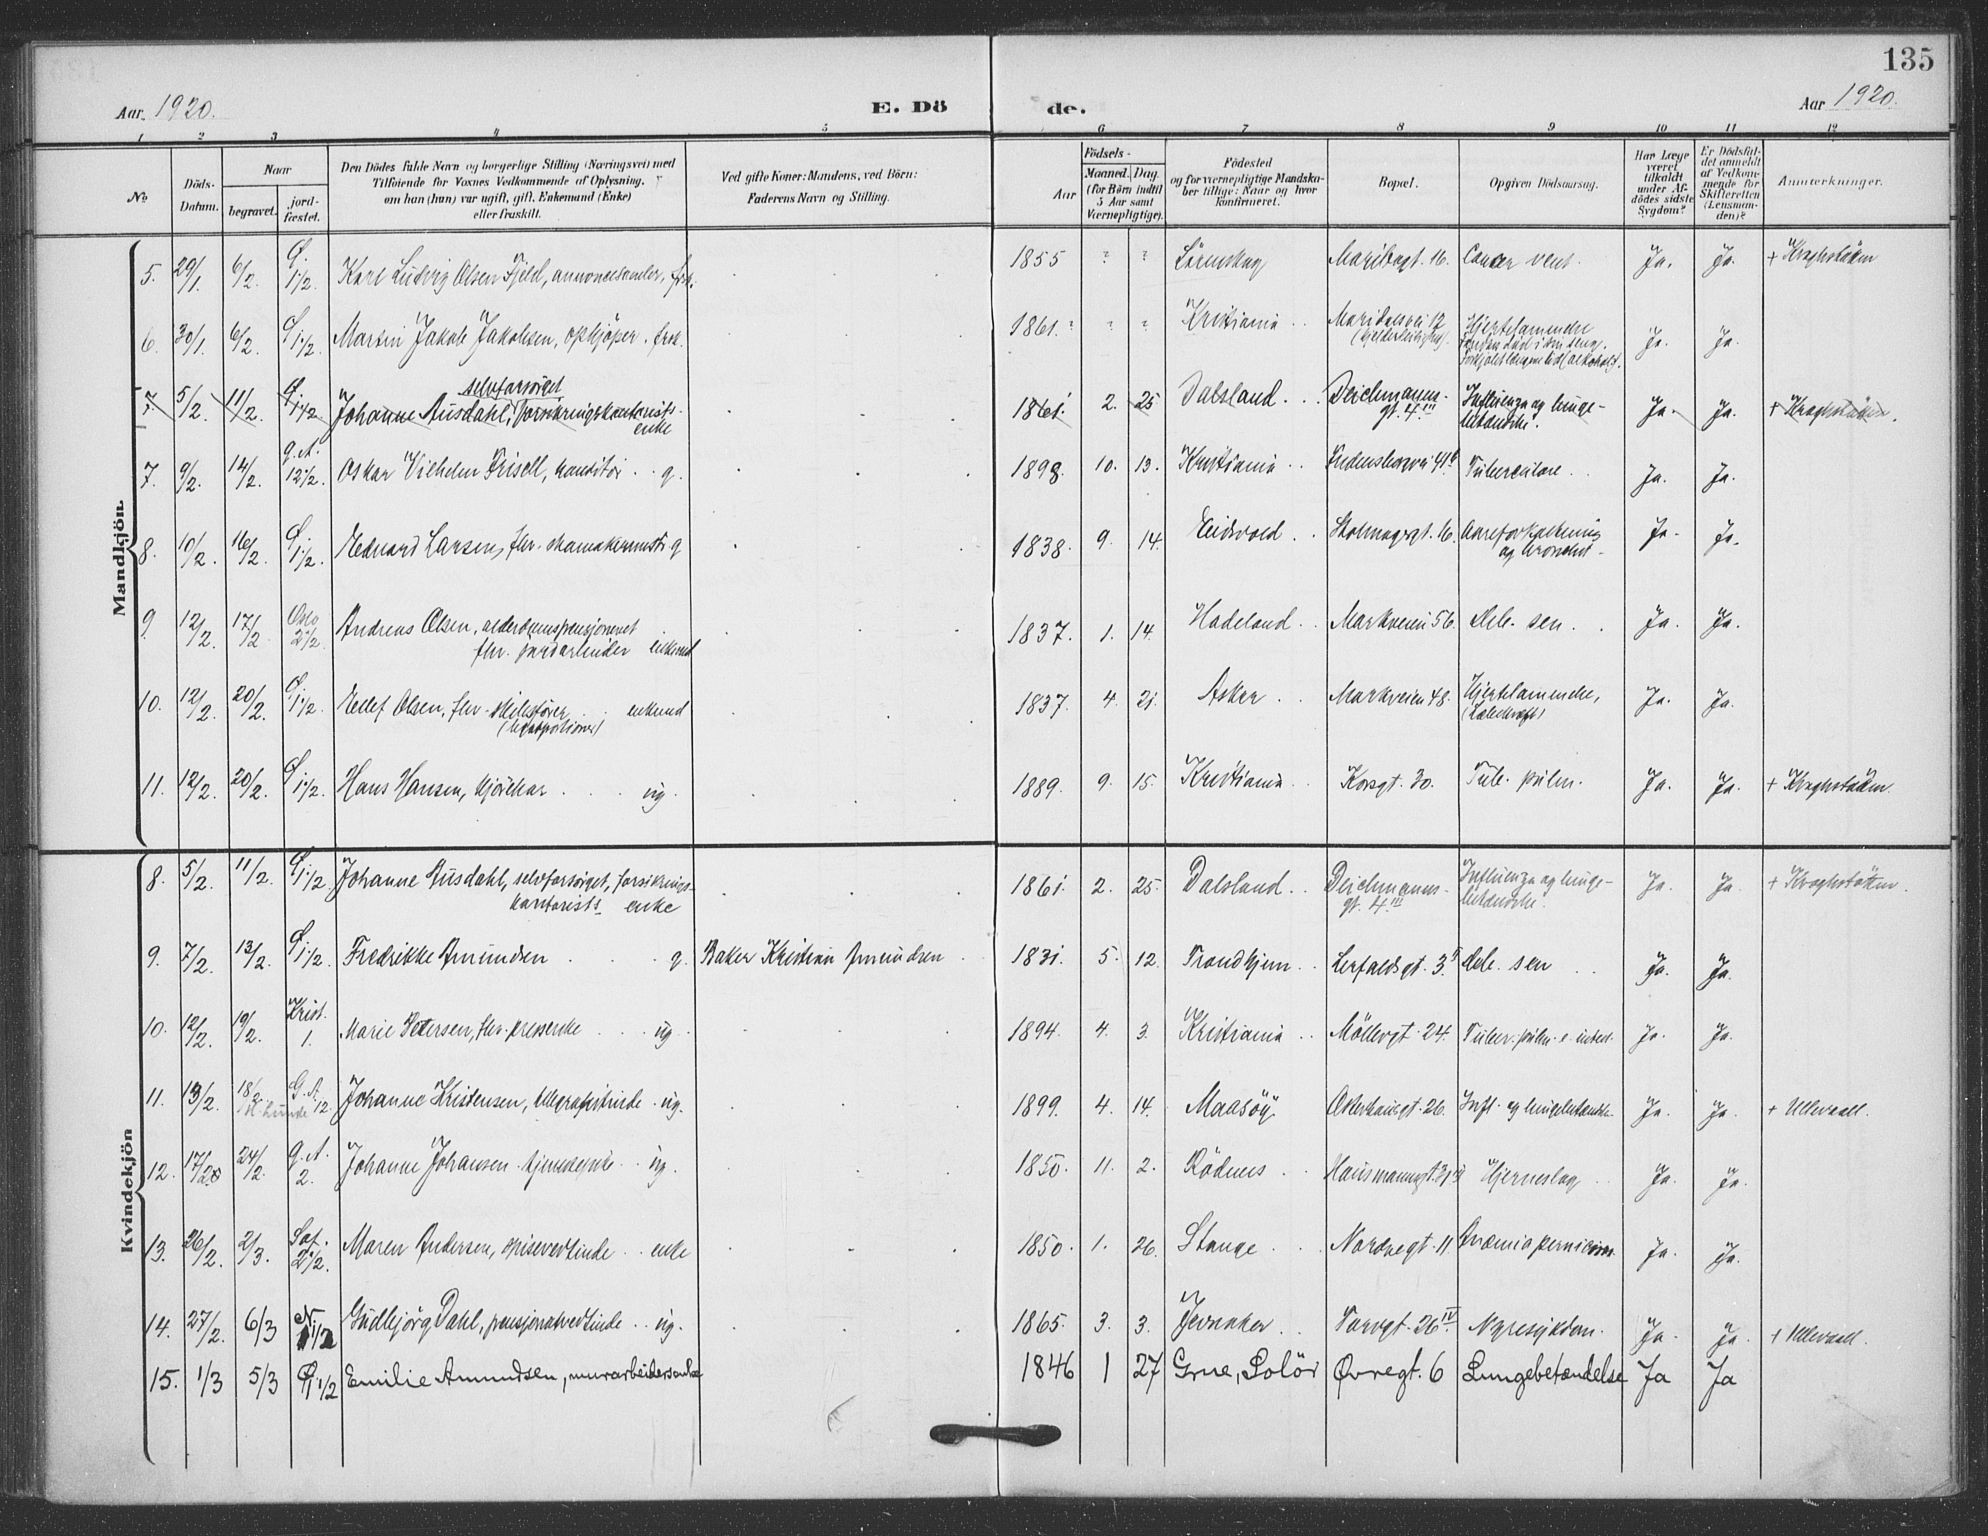 135
Aar. 1920. E. Dö de. Aar 1920.
1 2 3 4 5 6 7 8 9 10 11 12
No.
Döds-
Datum.
Naar
begravet.
jord-
fæstet.
Den Dödes fulde Navn og borgerlige Stilling (Næringsvei) med
Tilföiende for Voxnes Vedkommende af Oplysning,
om han (hun) var ugift, gift, Enkemand (Enke)
eller fraskilt.
Ved gifte Koner: Mandens, ved Börn:
Faderens Navn og Stilling.
Födsels-
Aar
Maaned. Dag.
(for Börn indtil
5 Aar samt
Værnepligtige).
Födested
og for værnepligtige Mandska-
ber tillige: Naar og hvor
konfirmeret.
Bopæl.
Opgiven Dödsaarsag.
Har Læge
været
tilkaldt
under Af-
dödes sidste
Sygdom?
Er Dödsfal-
det anmeldt
af Vedkom-
mende for
Skifteretten
(Lensman-
den)?
Anmærkninger.
Mandkjön.
5. 29/1. 6/2. 1 1/2. Karl Ludvig Olsen Fjeld, annoncesamler, frk. 1855 " " Lørenskog Maribogt. 16. Cancer vent. Ja. Ja. + Kraghstötten
6. 30/1. 6/2. 1 1/2. Martin Jakob Jakobsen, opkjöper. frsk. 1861. " " Kristiania Maridalsvei 17 Hjertelammelse Ja. Ja.
7. 5/2. 11/2. 1 1/2 Johanne Ausdahl, selvforsörget forsikringskontorists enke 1861. 2. 25 Dalsland. Deichmanns-
gt. 4 III Influenza og lunge-
betændelse. Ja. Ja. + Kraghstötten.
7. 9/2. 14/2. g. A. 12 1/2. Oskar Vilhelm Frisell, konditor g. 1898. 10. 13. Kristiania Fredensborgvei 41 b Tuberculose Ja. Ja.
8. 10/2. 16/2. 1 1/2. Edvard Larsen, fhv. skomakermester g 1838. 9. 14. Eidsvold Stolmagergt. 16. Aareforkalkning
og bronchit Ja. Ja.
9. 12/2. 17/2. Oslo 2 1/2. Andreas Olsen, alderdomspensjoneret
fhv. jordarbeider enkemd 1837. 1. 14. Hadeland Markveien 56. Deb. sen. Ja. Ja.
10. 12/2. 20/2. 1 1/2. Edlef Olsen, fhv. skibsförer enkemd 1837. 4. 21. Asker Markveien 48. Hjertelammelse, Ja. Ja.
11. 12/2. 20/2. 1 1/2. Hans Hansen, kjörekar ug. 1889. 9. 15. Kristiania Korsgt. 30. Tub. pulm. Ja. Ja. + Kraghstötten.
Kvindekjön
8. 5/2. 11/2. 1 1/2 Johanne Ausdahl, selvforsörget, forsikrings-
kontorists enke 1861. 2. 25. Dalsland Deichmanns-
gt. 4 III Influenza og lunge-
betændelse. Ja. Ja + Kraghstötten.
9. 7/2. 13/2. 1 1/2. Fredrikke Amundsen g. Baker Kristian Amundsen 1831. 5. 12. Trondhjem Lerfaldsgt. 3. Deb. sen Ja. Ja.
10. 12/2. 19/2. Krist. 1. Marie Petersen, fhv. presserske ug. 1894. 4. 3. Kristiania Möllergt. 24. Tuber. pulm. e. intest. Ja. Ja.
11. 13/2. 18/2. G. A. 12 Johanne Kristensen, telegrafistinde ug. 1899. 4. 14. Maasöy Osterhausgt. 26. Infl. og lungebetændelse Ja. Ja. + Ullevaal.
12. 17/2. 24/2. g. A. 2. Johanne Johansen tjenestepike ug. 1850. 11. 2. Rödenes Hausmannsgt. Hjerneslag Ja. Ja.
13. 26/2. 2/3. Sof. 2 1/2. Maren Andersen, spisevertinde enke 1850. 1. 26. Stange Nordregt. 11 Anæmia pernicios. Ja. Ja.
14. 27/2. 6/3 N. 1 1/2 Gudbjörg Dahl, pensjonatvertinde ug. 1865. 3. 3. Jevnaker Torvgt. 26 IV. Nyresykdom. Ja. Ja. + Ullevaal.
15. 1/3 5/3 1 1/2 Emilie Amundsen, murarbeidersenke 1846 1 27 Grue, Solör Øvregt. 6 Lungebetændelse Ja Ja